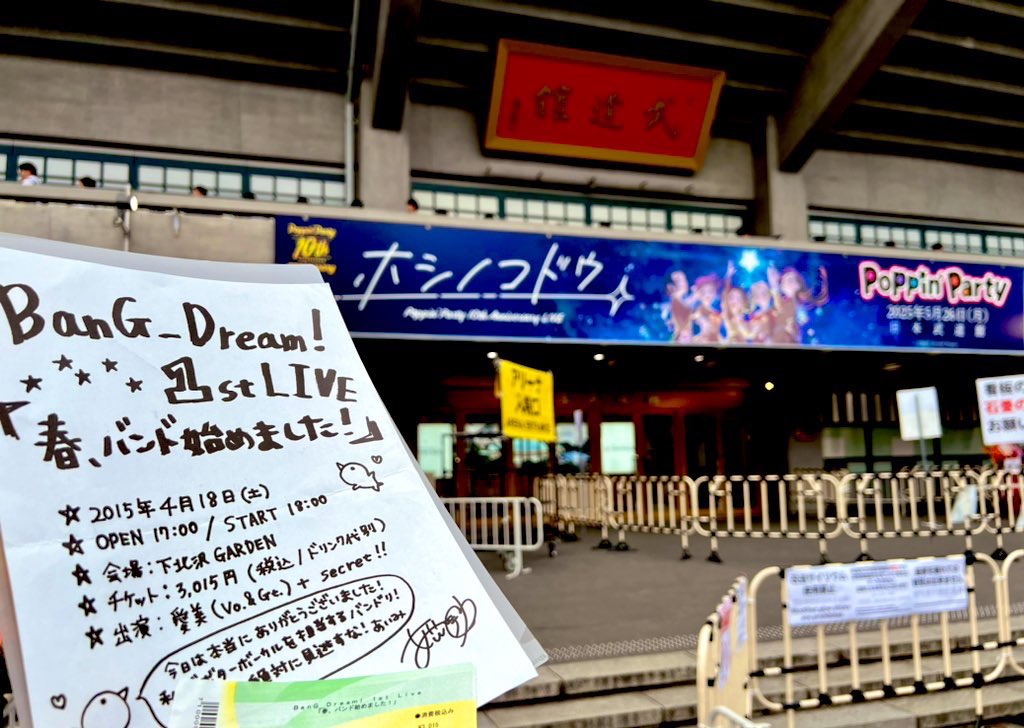 武道館
Poppin'Party
10th
Anniversary
ホシノコドウ
Poppin'Party 10th Anniversary LIVE
Poppin'Party
2025年5月26日(月)
日本武道館
アリーナ
入場口
BanG_Dream!
1st LIVE
春、バンド始めました!」
★ 2015年4月18日(土)
★ OPEN 17:00 / START 18:00
★ 会場:下北沢GARDEN
★ チケット:3,015円(税込/ドリンク代別)
★ 出演:愛美(Vo.&Gt.) + secret!!
今日は本当にありがとうございました!
ターボーカルを担当するバンドリ!
絶対に見逃すな! あいみ
BanG_Dream! 1st Live
「春、バンド始めました!」
●消費税込み
¥3,015